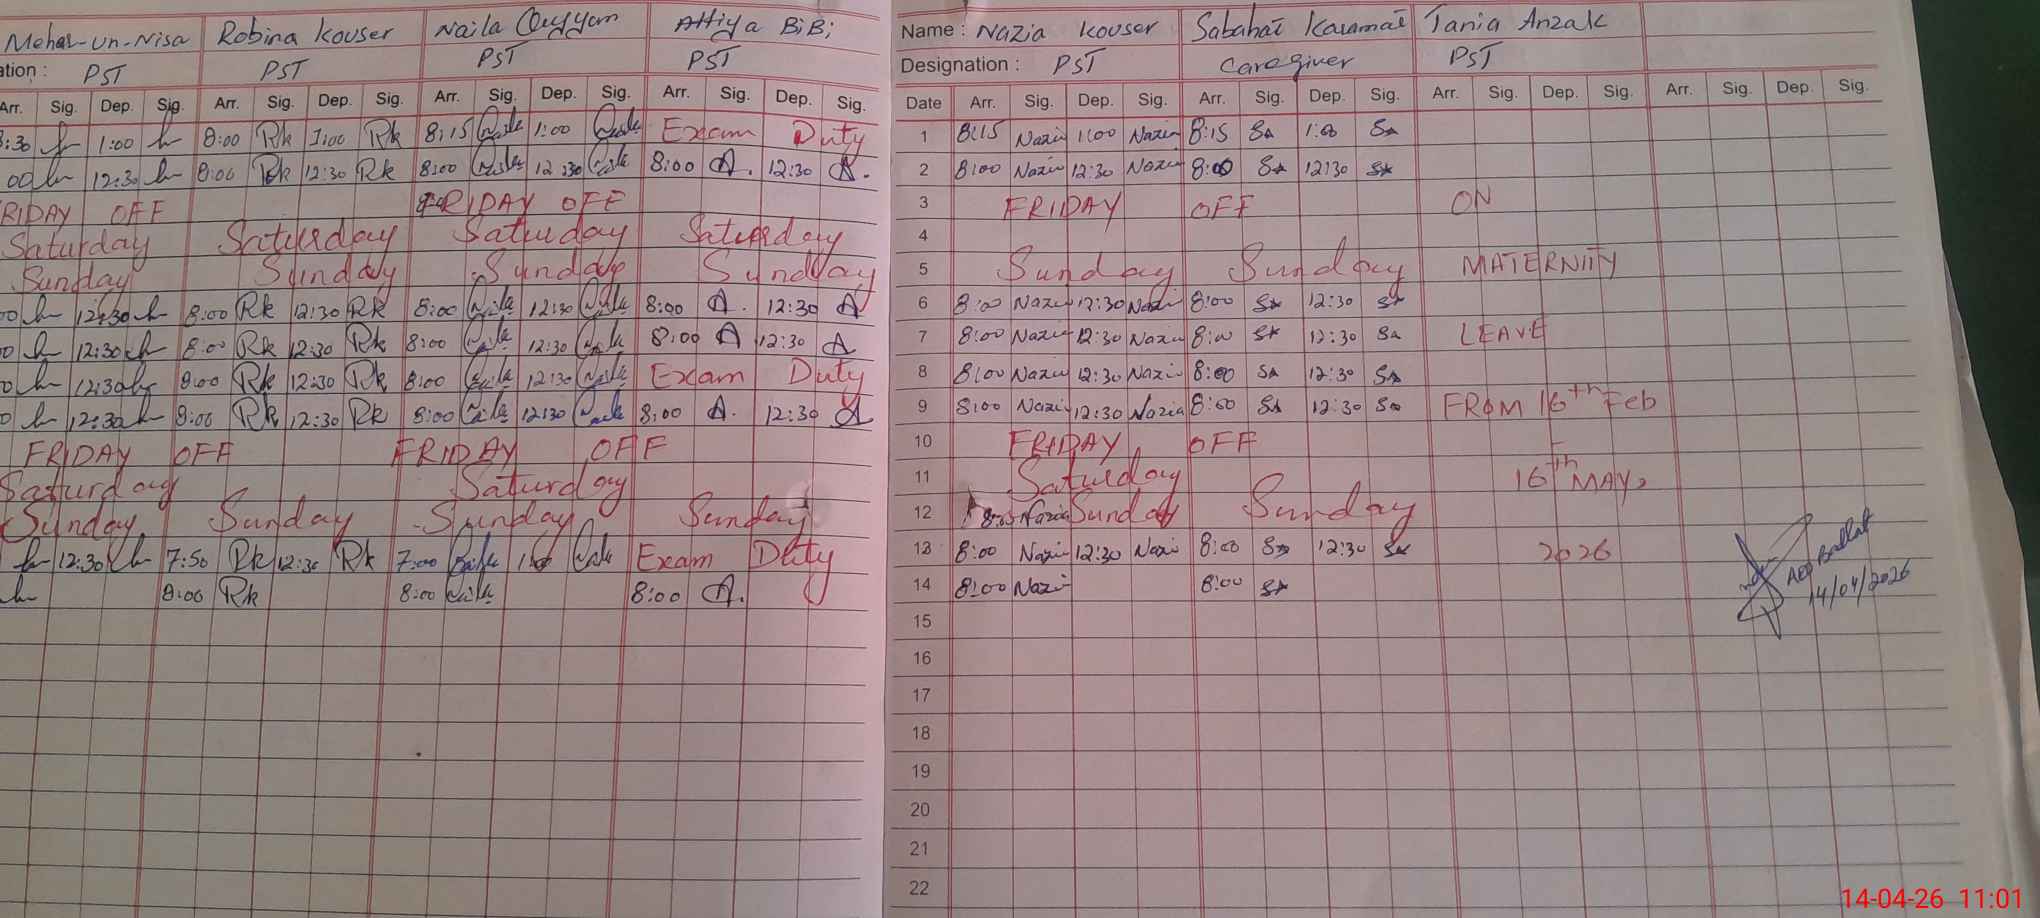 Mehar-un-Nisa Robina Kouser Naila Qayyum Attiya BiBi
ation : PST PST PST PST
Arr. Sig. Dep. Sig. Arr. Sig. Dep. Sig. Arr. Sig. Dep. Sig. Arr. Sig. Dep. Sig.
:30 1:00 8:00 Rk 1:00 Rk 8:15 Naila 1:00 Naila Exam Duty
00 12:30 8:00 Rk 12:30 Rk 8:00 Naila 12:30 Naila 8:00 A. 12:30 A.
RIDAY OFF FRIDAY OFF
Saturday Saturday Saturday Saturday
Sunday Sunday Sunday Sunday
0 12:30 8:00 Rk 12:30 Rk 8:00 Naila 12:30 Naila 8:00 A. 12:30 A
0 12:30 8:00 Rk 12:30 Rk 8:00 Naila 12:30 Naila 8:00 A 12:30 A
0 12:30 8:00 Rk 12:30 Rk 8:00 Naila 12:30 Naila Exam Duty
0 12:30 8:00 Rk 12:30 Rk 8:00 Naila 12:30 Naila 8:00 A. 12:30 A
FRIDAY OFF FRIDAY OFF
Saturday Saturday
Sunday Sunday Sunday Sunday
12:30 7:50 Rk 12:30 Rk 7:00 Naila Naila Exam Duty
8:00 Rk 8:00 Naila 8:00 A.
Name : Nazia Kouser Sabahat Karamat Tania Anzak
Designation : PST Caregiver PST
Date Arr. Sig. Dep. Sig. Arr. Sig. Dep. Sig. Arr. Sig. Dep. Sig. Arr. Sig. Dep. Sig.
1 8:15 Nazia 1:00 Nazia 8:15 Sa 1:00 Sa
2 8:00 Nazia 12:30 Nazia 8:00 Sa 12:30 Sa
3 FRIDAY OFF ON
4
5 Sunday Sunday MATERNITY
6 8:00 Nazia 12:30 Nazia 8:00 Sa 12:30 Sa
7 8:00 Nazia 12:30 Nazia 8:00 Sa 12:30 Sa LEAVE
8 8:00 Nazia 12:30 Nazia 8:00 Sa 12:30 Sa
9 8:00 Nazia 12:30 Nazia 8:00 Sa 12:30 Sa FROM 16th Feb
10 FRIDAY OFF
11 Saturday 16th MAY,
12 Nazia Sunday Sunday
13 8:00 Nazia 12:30 Nazi 8:00 Sa 12:30 Sa 2026
14 8:00 Nazi 8:00 Sa
14/04/2026
15
16
17
18
19
20
21
22
14-04-26 11:01